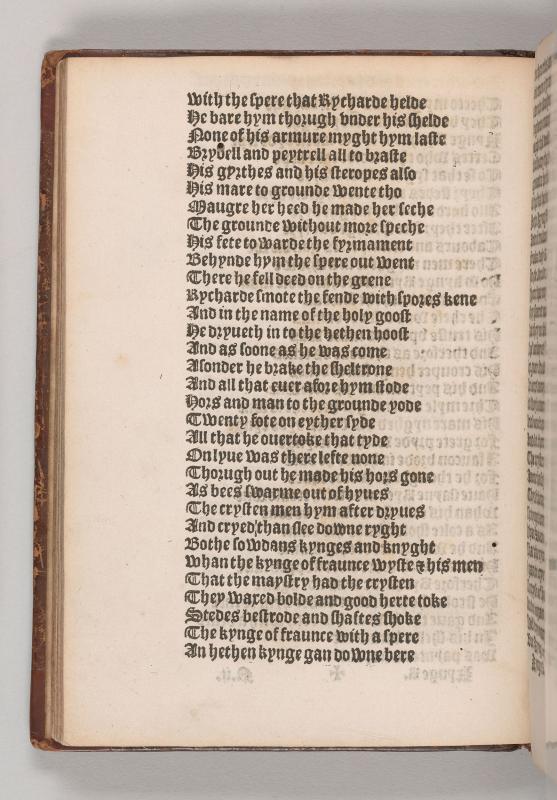 With the spere that Rycharde helde
He bare hym thorugh vnder his shelde
None of his armure myght hym laste
Brydell and peytrell all to braste
His gyrthes and his steropes also
His mare to grounde wente tho
Maugre her heed he made her seche
The grounde without more speche
His fete towarde the fyrmament
Behynde hym the spere out went
There he fell deed on the grene
Rycharde smote the fende with spores kene
And in the name of the holy goost
He dryueth in to the hethen hoost
And as soone as he was come
Asonder he brake the sheltrone
And all that euer afore hym stode
Hors and man to the grounde yode
Twenty fote on eyther syde
All that he ouertoke that tyde
Onlyue was there lefte none
Thorugh out he made his hors gone
As bees swarme out of hyues
The crysten men hym after dryues
And cryed than slee downe ryght
Bothe sowdans kynges and knyght
Whan the kynge of fraunce wyste & his men
That the maystry had the crysten
They waxed bolde and good herte toke
Stedes bestrode and shaftes shoke
The kynge of fraunce with a spere
An hethen kynge gan downe bere